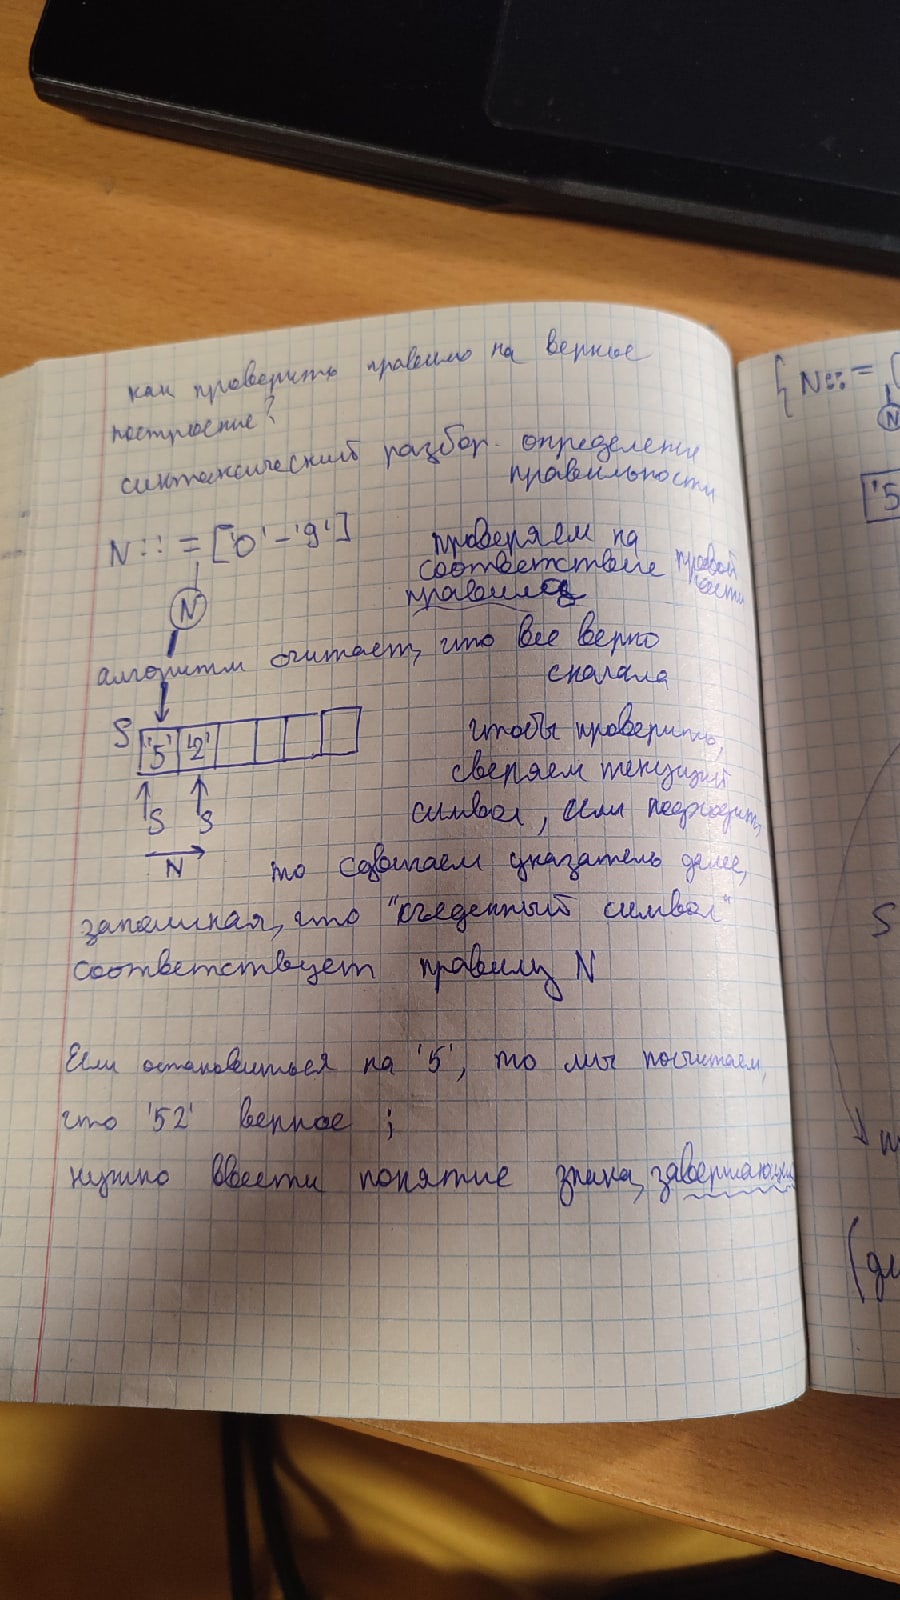 как проверить правило на верное
построение?
синтаксический разбор - определение
правильности
N ::= ['0'-'9']
N
проверяем на
соответствие правой
части
правила
алгоритм считает, что все верно
сначала
S '5' '2'
S S
N
чтобы проверить,
сверяем текущий
символ, если подходит,
то сдвигаем указатель далее,
запоминая, что "съеденный символ"
соответствует правилу N
Если остановиться на '5', то мы посчитаем,
что '52' верное ;
нужно ввести понятие знака, завершающ
{ N ::=
N
'5
S